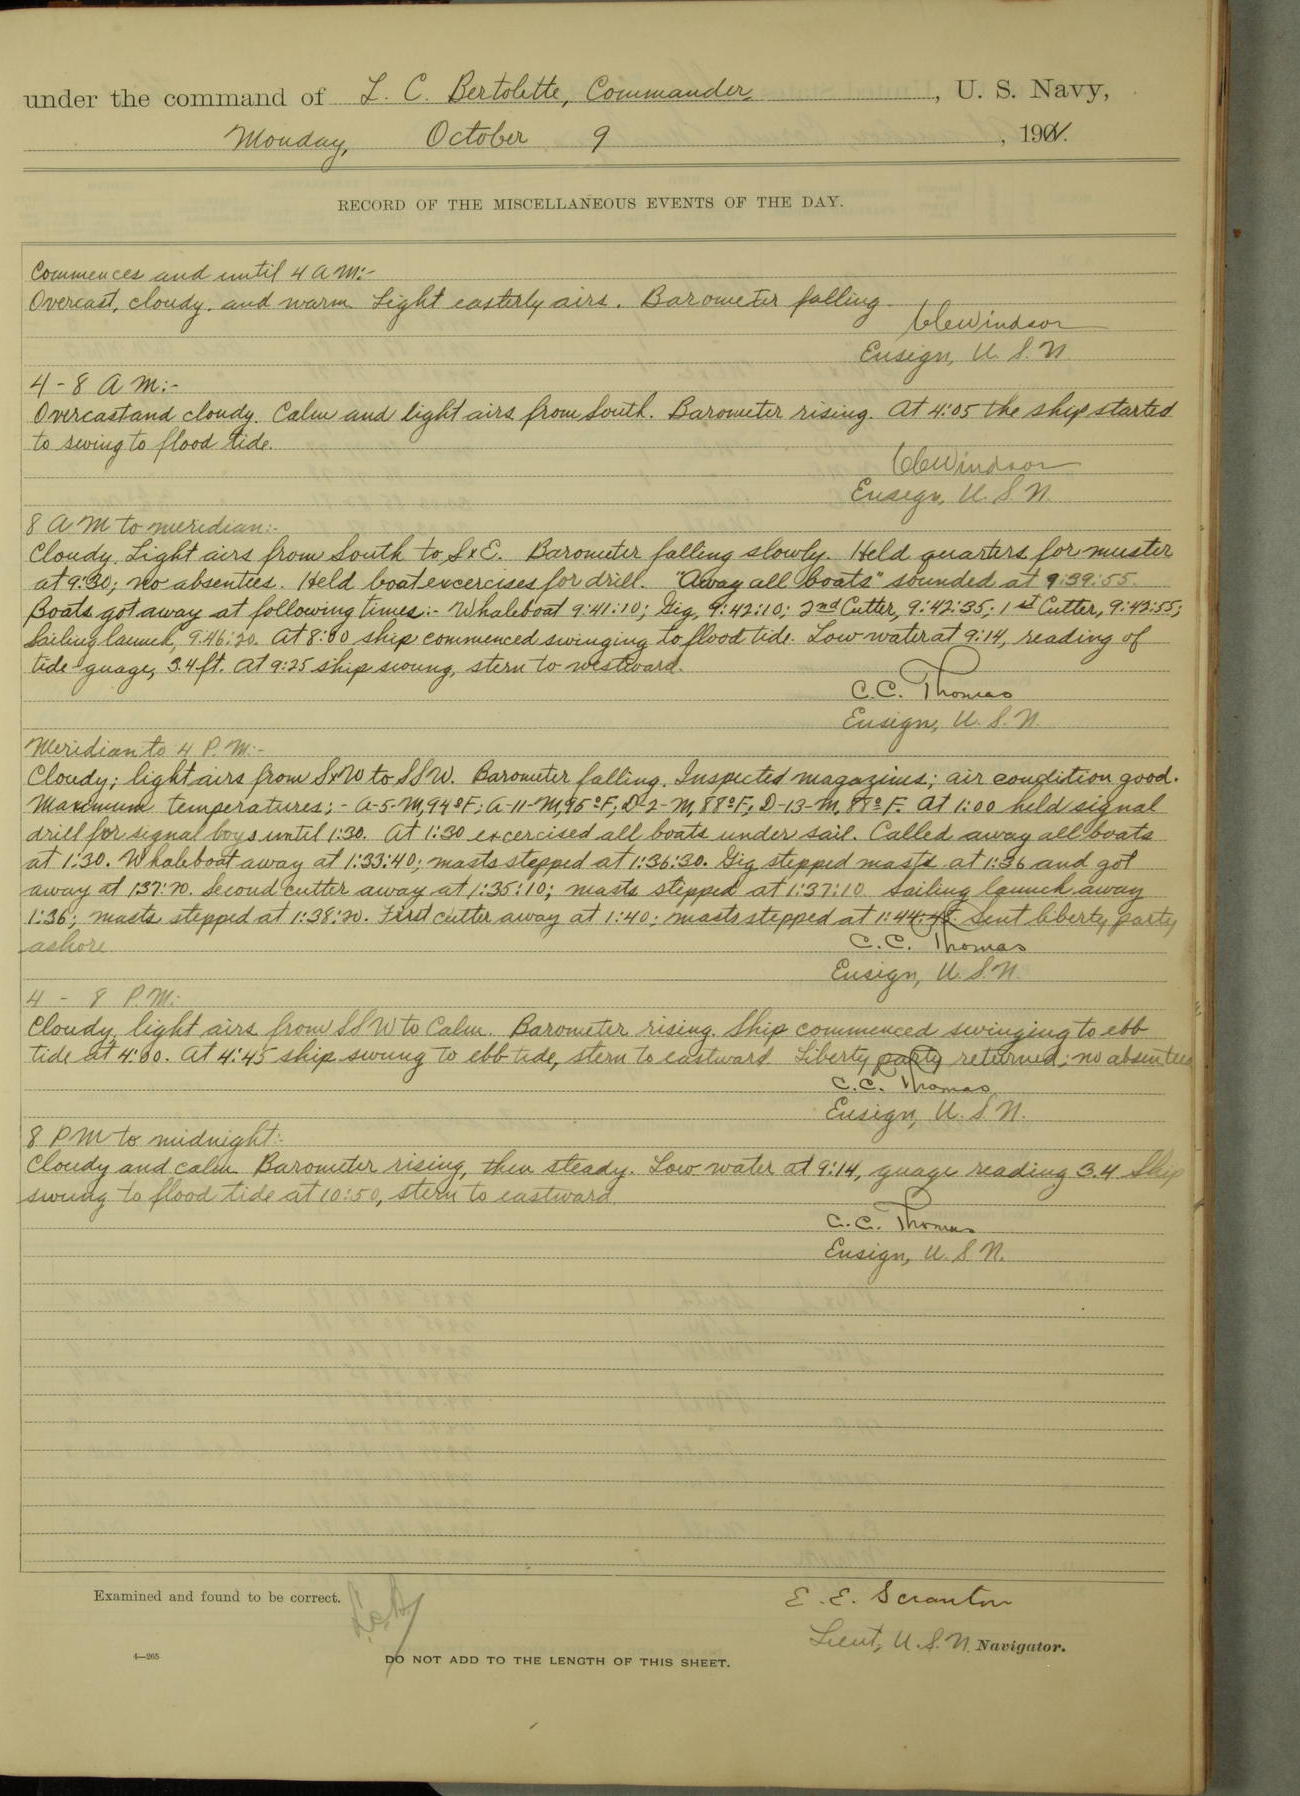 under the command of L. C. Bertolette, Commander, U. S. Navy,
Monday, October 9, 1911.
RECORD OF THE MISCELLANEOUS EVENTS OF THE DAY.
Commences and until 4 A M:-
Overcast, cloudy. and warm. Light easterly airs. Barometer falling.
Windsor
Ensign, U. S. N.
4 - 8 A M:-
Overcast and cloudy. Calm and light airs from South. Barometer rising. At 4:05 the ship started
to swing to flood tide.
Windsor
Ensign, U. S. N.
8 A M to meridian:-
Cloudy. Light airs from South to SxE. Barometer falling slowly. Held quarters for muster
at 9:30; no absenties. Held boat excercises for drill. "Away all boats" sounded at 9:39:55.
Boats got away at following times:- Whaleboat 9:41:10; Gig, 9:42:10; 2nd Cutter, 9:42:35; 1st Cutter, 9:42:55;
Sailing launch, 9:46:20. At 8:00 ship commenced swinging to flood tide. Low water at 9:14, reading of
tide guage, 3.4 ft. At 9:25 ship swung, stern to westward.
C. C. Thomas
Ensign, U. S. N.
Meridian to 4 P. M:-
Cloudy; light airs from SxW to SSW. Barometer falling. Inspected magazines; air condition good.
Maximum temperatures:- A-5-M, 94°F; A-11-M, 95°F; D-2-M, 88°F; D-13-M, 88° F. At 1:00 held signal
drill for signal boys until 1:30. At 1:30 excercised all boats under sail. Called away all boats
at 1:30. Whaleboat away at 1:33:40; masts stepped at 1:36:30. Gig stepped masts at 1:36 and got
away at 1:37:20. Second cutter away at 1:35:10; masts stepped at 1:37:10. Sailing launch away
1:36; masts stepped at 1:38:20. First cutter away at 1:40; masts stepped at 1:44:48. Sent liberty party
ashore.
C. C. Thomas
Ensign, U. S. N.
4 - 8 P. M:-
Cloudy, light airs from SSW to Calm. Barometer rising. Ship commenced swinging to ebb
tide at 4:00. At 4:45 ship swung to ebb tide, stern to eastward. Liberty party returned; no absentees
C. C. Thomas
Ensign, U. S. N.
8 P M to midnight:-
Cloudy and calm. Barometer rising, then steady. Low water at 9:14, guage reading 3.4 Ship
swung to flood tide at 10:50, stern to eastward.
C. C. Thomas
Ensign, U. S. N.
Examined and found to be correct.
E. E. Scranton
Lieut, U. S. N. Navigator.
4—265
DO NOT ADD TO THE LENGTH OF THIS SHEET.